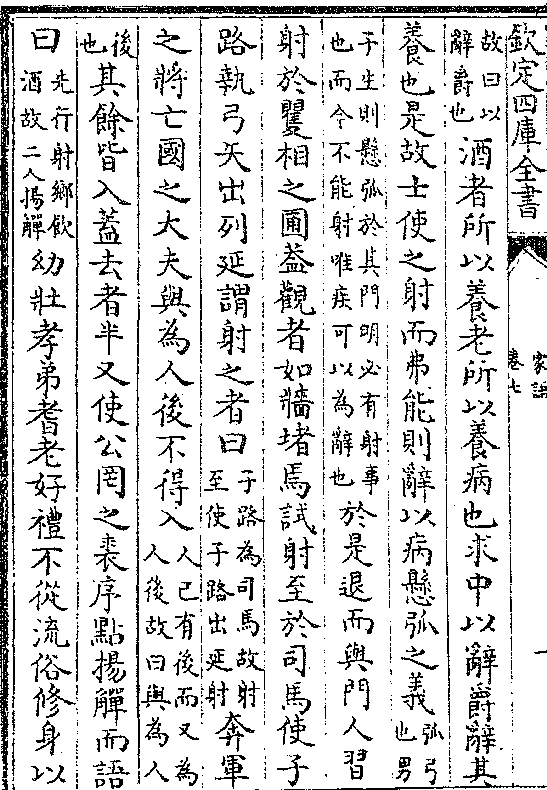 欽定四庫全書
家語
卷七
一
故曰以
辭爵也
酒者所以養老所以養病也求中以辭爵辭其
養也是故士使之射而弗能則辭以病懸弧之義
弧弓
也男
子生則懸弧於其門明必有射事
也而今不能射唯疾可以為辭也
於是退而與門人習
射於矍相之圃葢觀者如牆堵焉試射至於司馬使子
路執弓矢出列延謂射之者曰
子路為司馬故射
至使子路出延射
奔軍
之將亡國之大夫與為人後不得入
人已有後而又為
人後故曰與為人
後
也
其餘皆入蓋去者半又使公罔之裘序點揚觶而語
曰
先行射鄉飲
酒故二人揚觶
幼壯孝弟耆老好禮不從流俗修身以